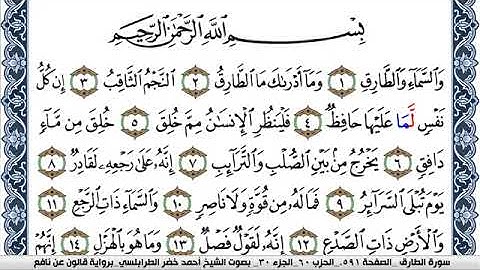 بِسْمِ اللَّهِ الرَّحْمَٰنِ الرَّحِيمِ
وَالسَّمَآءِ وَالطَّارِقِ ١ وَمَآ أَدْرَىٰكَ مَا الطَّارِقُ ٢ النَّجْمُ الثَّاقِبُ ٣ إِن كُلُّ
نَفْسٍ لَّمَا عَلَيْهَا حَافِظٌ ٤ فَلْيَنظُرِ الْإِنسَٰنُ مِمَّ خُلِقَ ٥ خُلِقَ مِن مَّآءٍ
دَافِقٍ ٦ يَخْرُجُ مِنۢ بَيْنِ الصُّلْبِ وَالتَّرَآئِبِ ٧ إِنَّهُۥ عَلَىٰ رَجْعِهِۦ لَقَادِرٌ ٨
يَوْمَ تُبْلَى السَّرَآئِرُ ٩ فَمَا لَهُۥ مِن قُوَّةٍ وَلَا نَاصِرٍ ١٠ وَالسَّمَآءِ ذَاتِ الرَّجْعِ ١١
وَالْأَرْضِ ذَاتِ الصَّدْعِ ١٢ إِنَّهُۥ لَقَوْلٌ فَصْلٌ ١٣ وَمَا هُوَ بِالْهَزْلِ ١٤ إِنَّهُمْ
سورة الطارق _ الصفحة ٥٩١_ الحزب ٦٠_الجزء ٣٠_ بصوت الشيخ أحمد خضر الطرابلسي. برواية قالون عن نافع